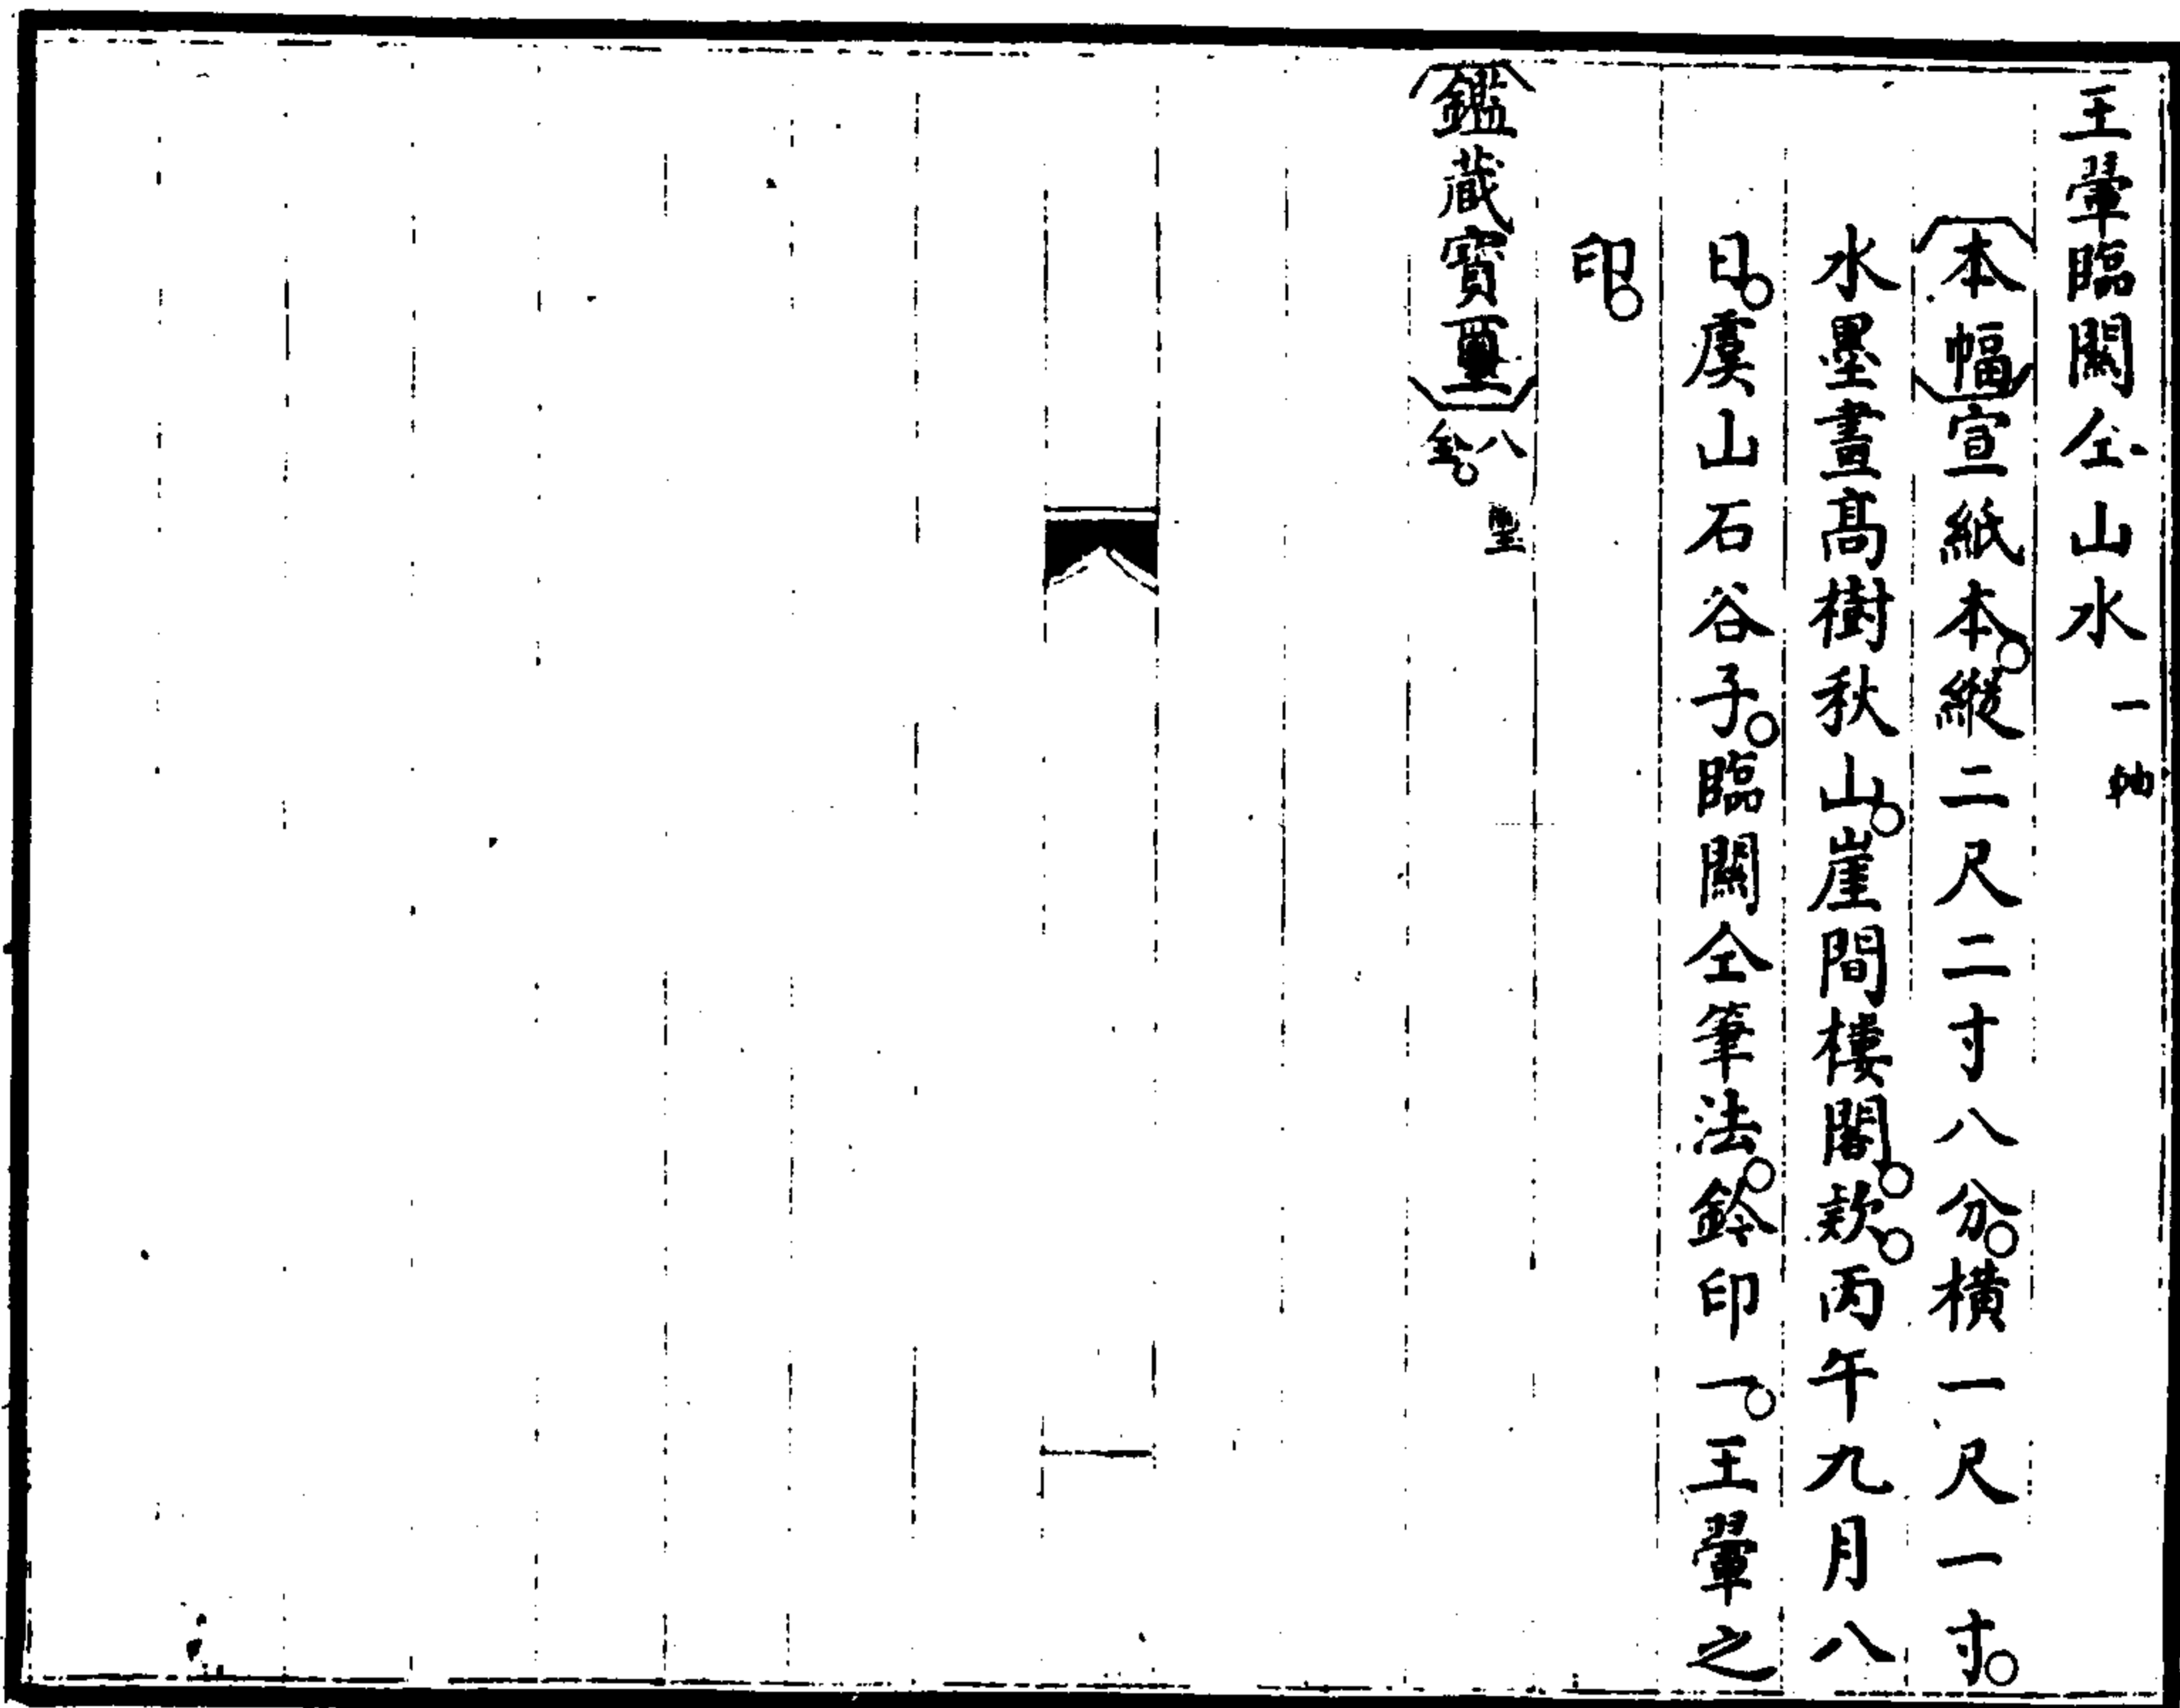 王翬臨關仝山水 一軸
〔本幅〕宣紙本。縱二尺二寸八分。橫一尺一寸。
水墨畫高樹秋山。崖間樓閣。款。丙午九月八
日。虞山石谷子。臨關仝筆法。鈐印一。王翬之
印。
〔鑑藏寶璽〕八璽全。